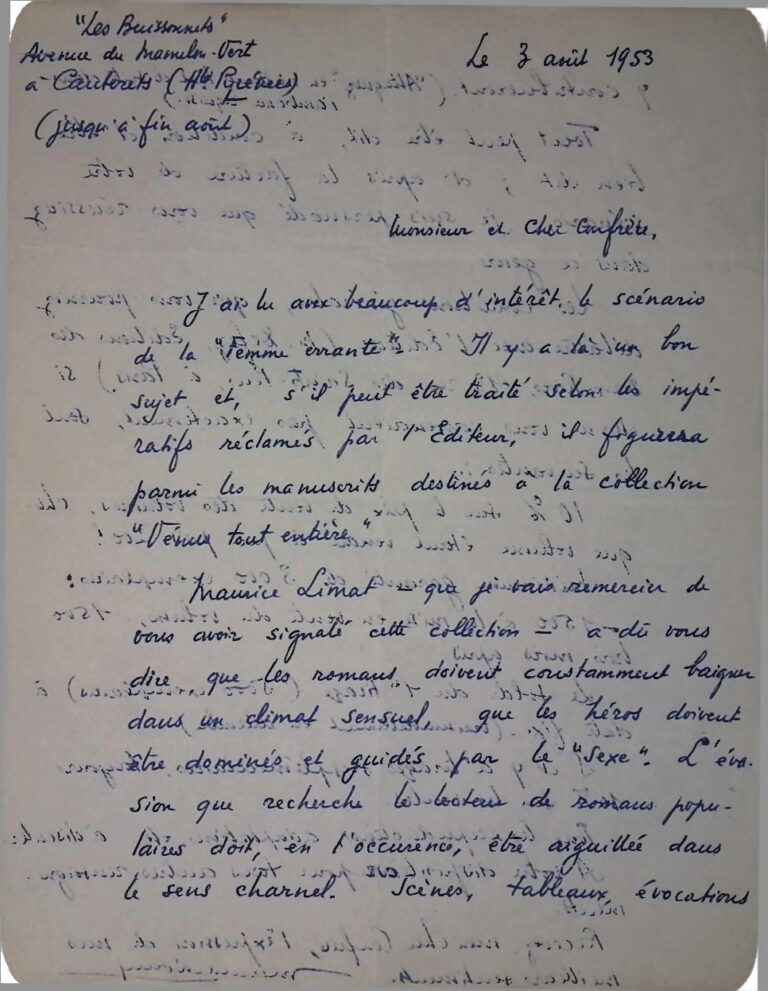 "Les Buissonnets"
Avenue du Mamelon-Vert
à Cauterets (Htes Pyrénées)
(jusqu'à fin août)
Le 3 août 1953
Monsieur et Cher Confrère,
J'ai lu avec beaucoup d'intérêt le scénario
de la "Femme errante". Il y a là un bon
sujet et, s'il peut être traité selon les impé-
ratifs réclamés par l'Editeur, il figurera
parmi les manuscrits destinés à la collection
"Vénus tout entière"
Maurice Limat — que je vais remercier de
vous avoir signalé cette collection — a dû vous
dire que les romans doivent constamment baigner
dans un climat sensuel, que les héros doivent
être dominés et guidés par le "Sexe". L'éva-
sion que recherche le lecteur de romans popu-
laires doit, en l'occurence, être aiguillée dans
le sens charnel. Scènes, tableaux, évocations